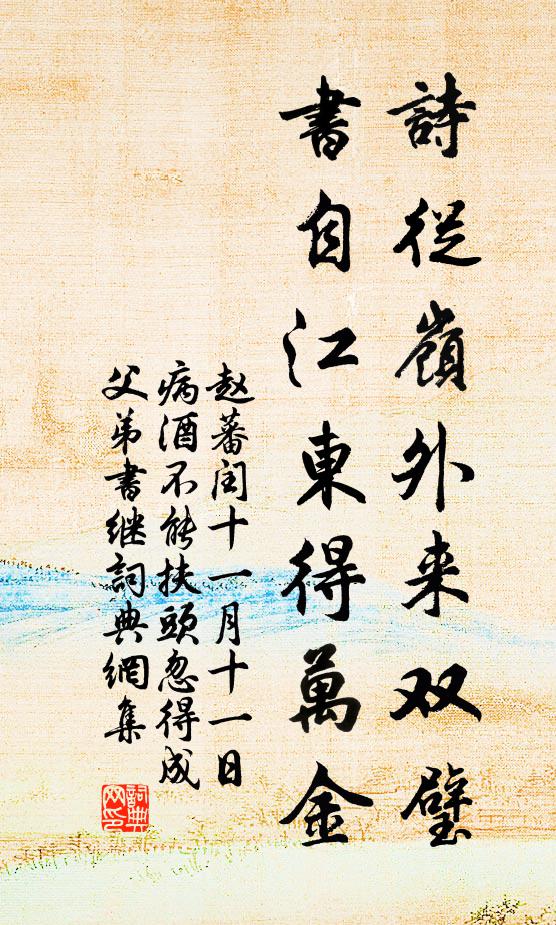 詩從嶺外来双璧
書自江東得萬金
赵蕃闰十一月十一日
病酒不能扶頭忽得成
父弟書继詞典網集
詞典网印